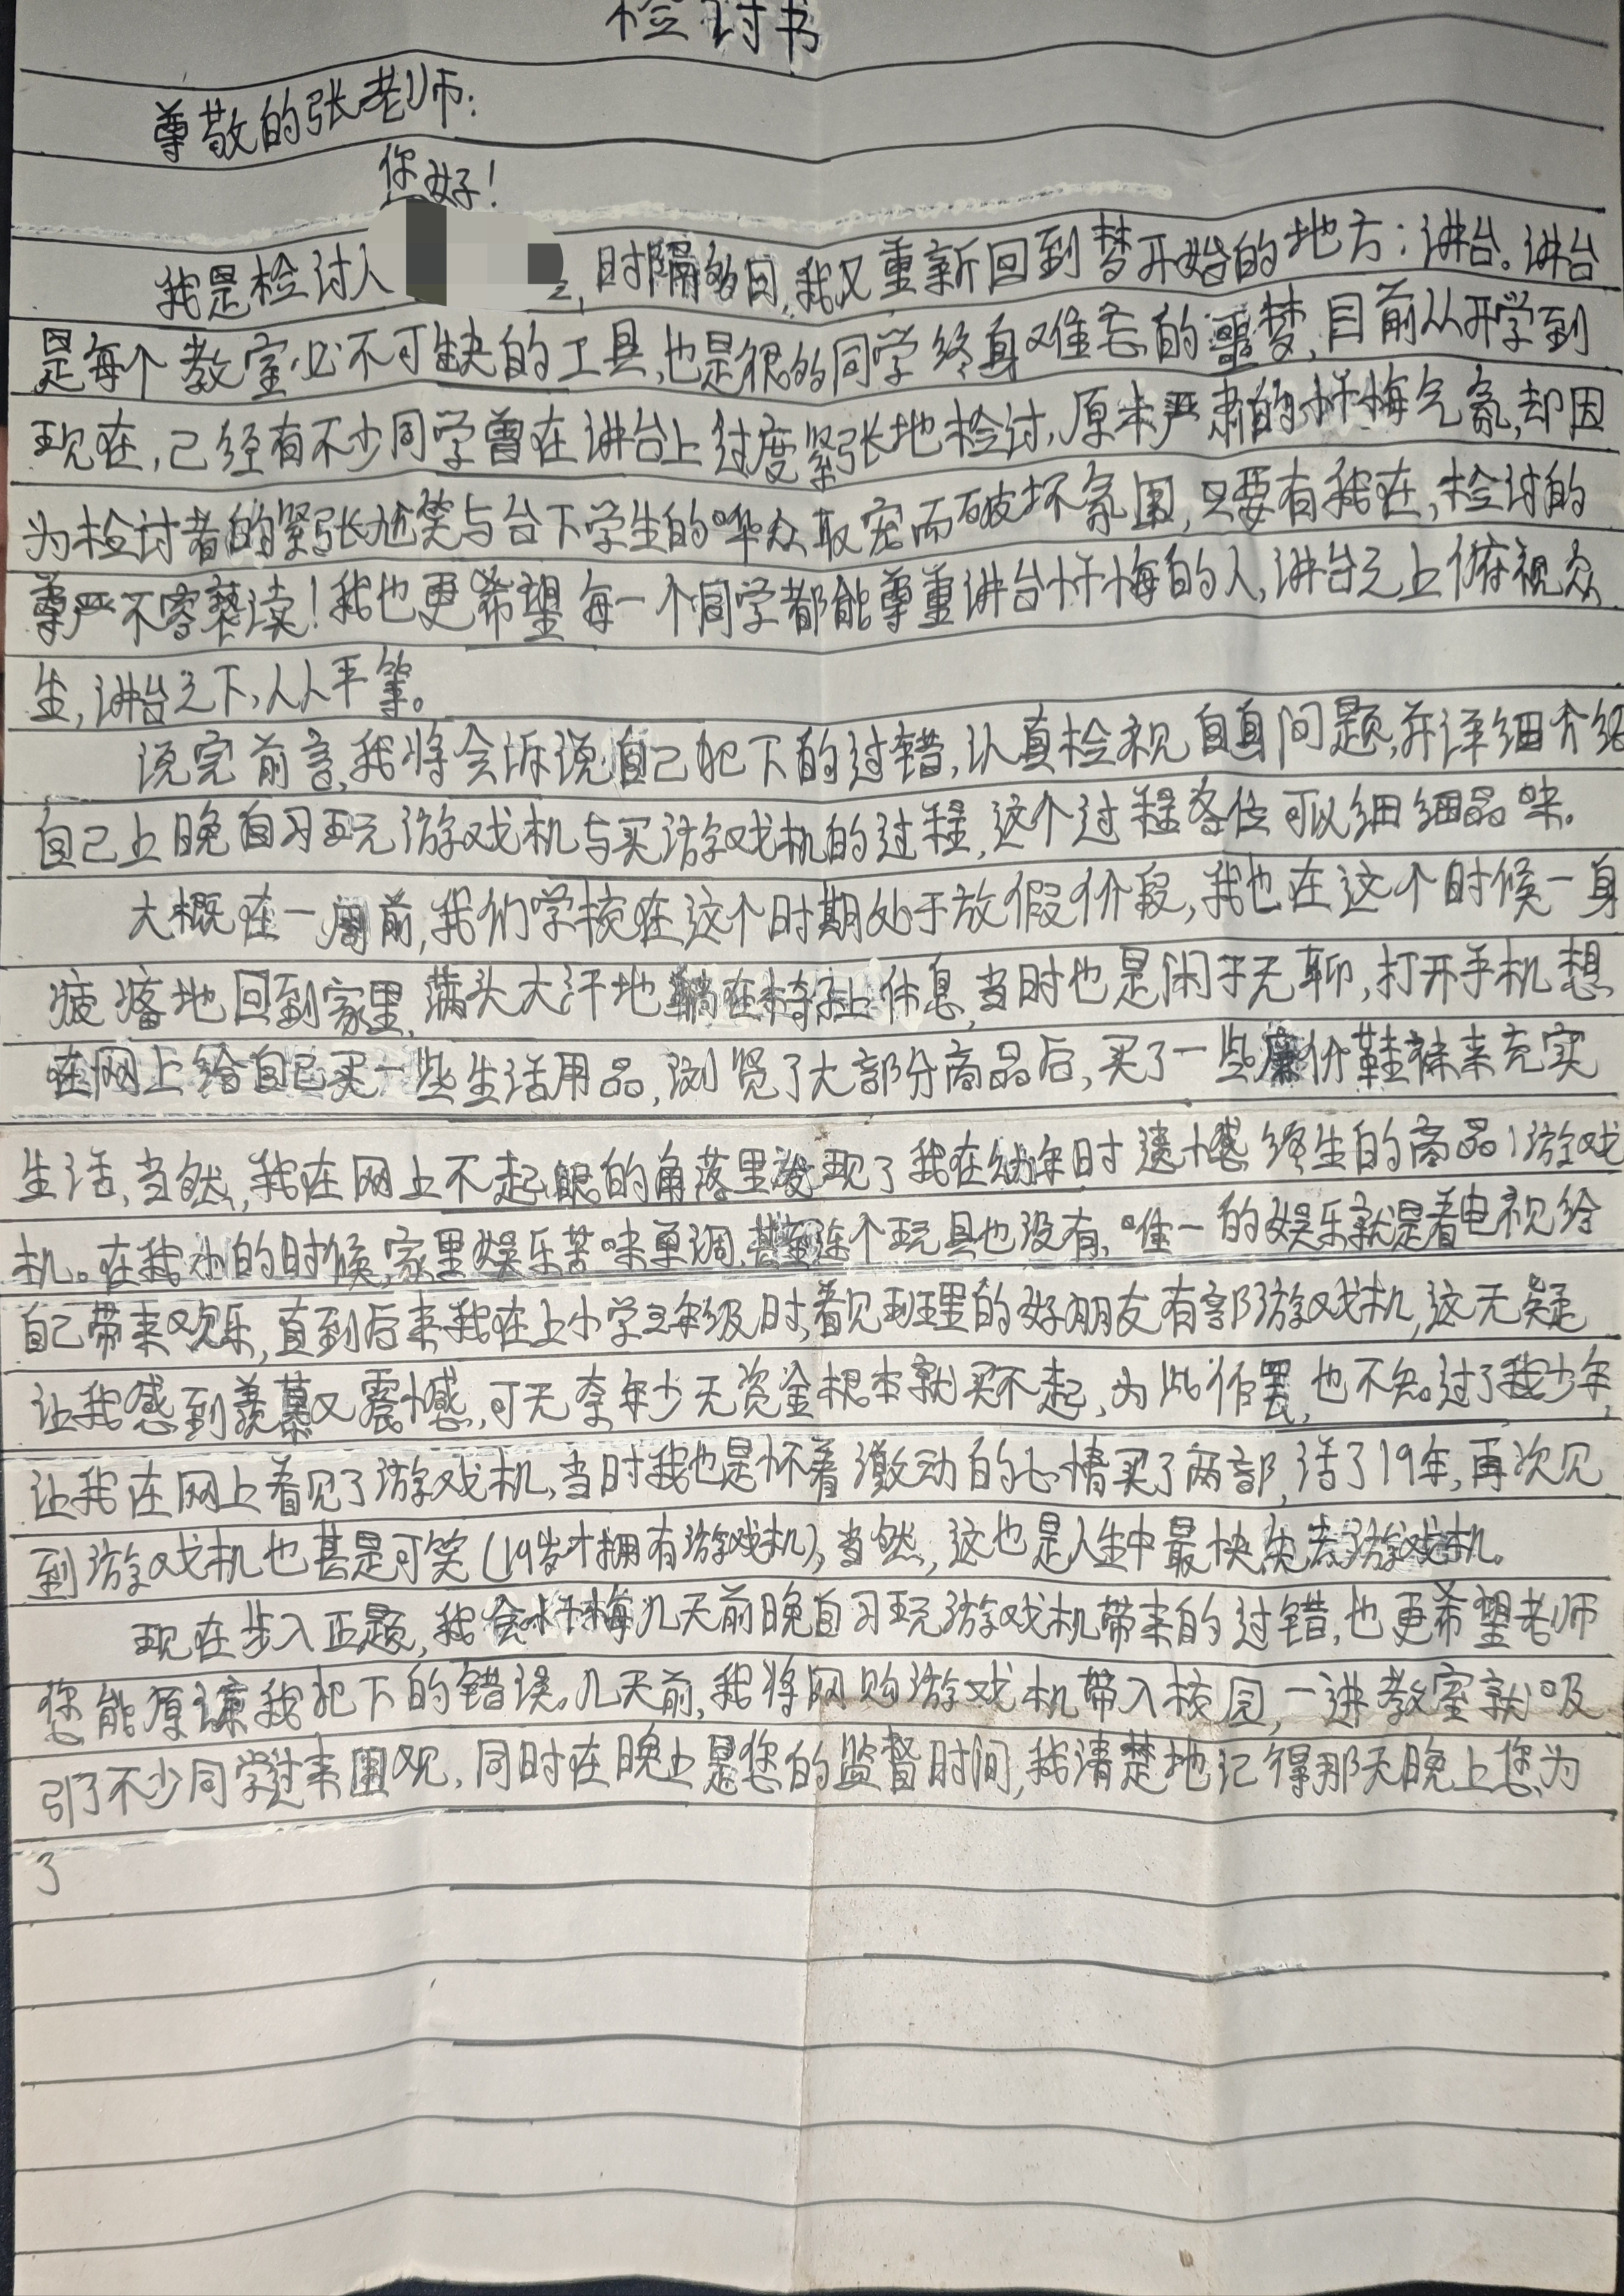 检讨书
尊敬的张老师:
您好!
我是检讨人 时隔多日,我又重新回到梦开始的地方:讲台。讲台
是每个教室必不可缺的工具,也是很多同学终身难忘的噩梦,目前从开学到
现在,已经有不少同学曾在讲台上过度紧张地检讨,原本严肃的忏悔气氛,却因
为检讨者的紧张尬笑与台下学生的哗众取宠而破坏氛围,只要有我在,检讨的
尊严不容亵渎!我也更希望每一个同学都能尊重讲台忏悔的人,讲台之上俯视众
生,讲台之下,人人平等。
说完前言,我将会诉说自己犯下的过错,认真检视自身问题,并详细介绍
自己上晚自习玩游戏机与买游戏机的过程,这个过程各位可以细细品味。
大概在一周前,我们学校在这个时期处于放假阶段,我也在这个时候一身
疲惫地回到家里,满头大汗地躺在椅子上休息,当时也是闲于无聊,打开手机想
在网上给自己买一些生活用品,浏览了大部分商品后,买了一些廉价鞋袜来充实
生活,当然,我在网上不起眼的角落里发现了我在幼年时遗憾终生的商品:游戏
机。在我小的时候,家里娱乐苦味单调,甚至连个玩具也没有,唯一的娱乐就是看电视给
自己带来欢乐,直到后来我在上小学三年级时,看见班里的好朋友有部游戏机,这无疑
让我感到羡慕又震憾,可无奈年少无资金根本就买不起,为此作罢,也不知过了我少年,
让我在网上看见了游戏机,当时我也是怀着激动的心情买了两部,活了19年,再次见
到游戏机也甚是可笑(19岁才拥有游戏机),当然,这也是人生中最快失去游戏机。
现在步入正题,我会忏悔几天前晚自习玩游戏机带来的过错,也更希望老师
您能原谅我犯下的错误。几天前,我将网购游戏机带入校园,一进教室就吸
引了不少同学过来围观,同时在晚上是您的监督时间,我清楚地记得那天晚上您为
了